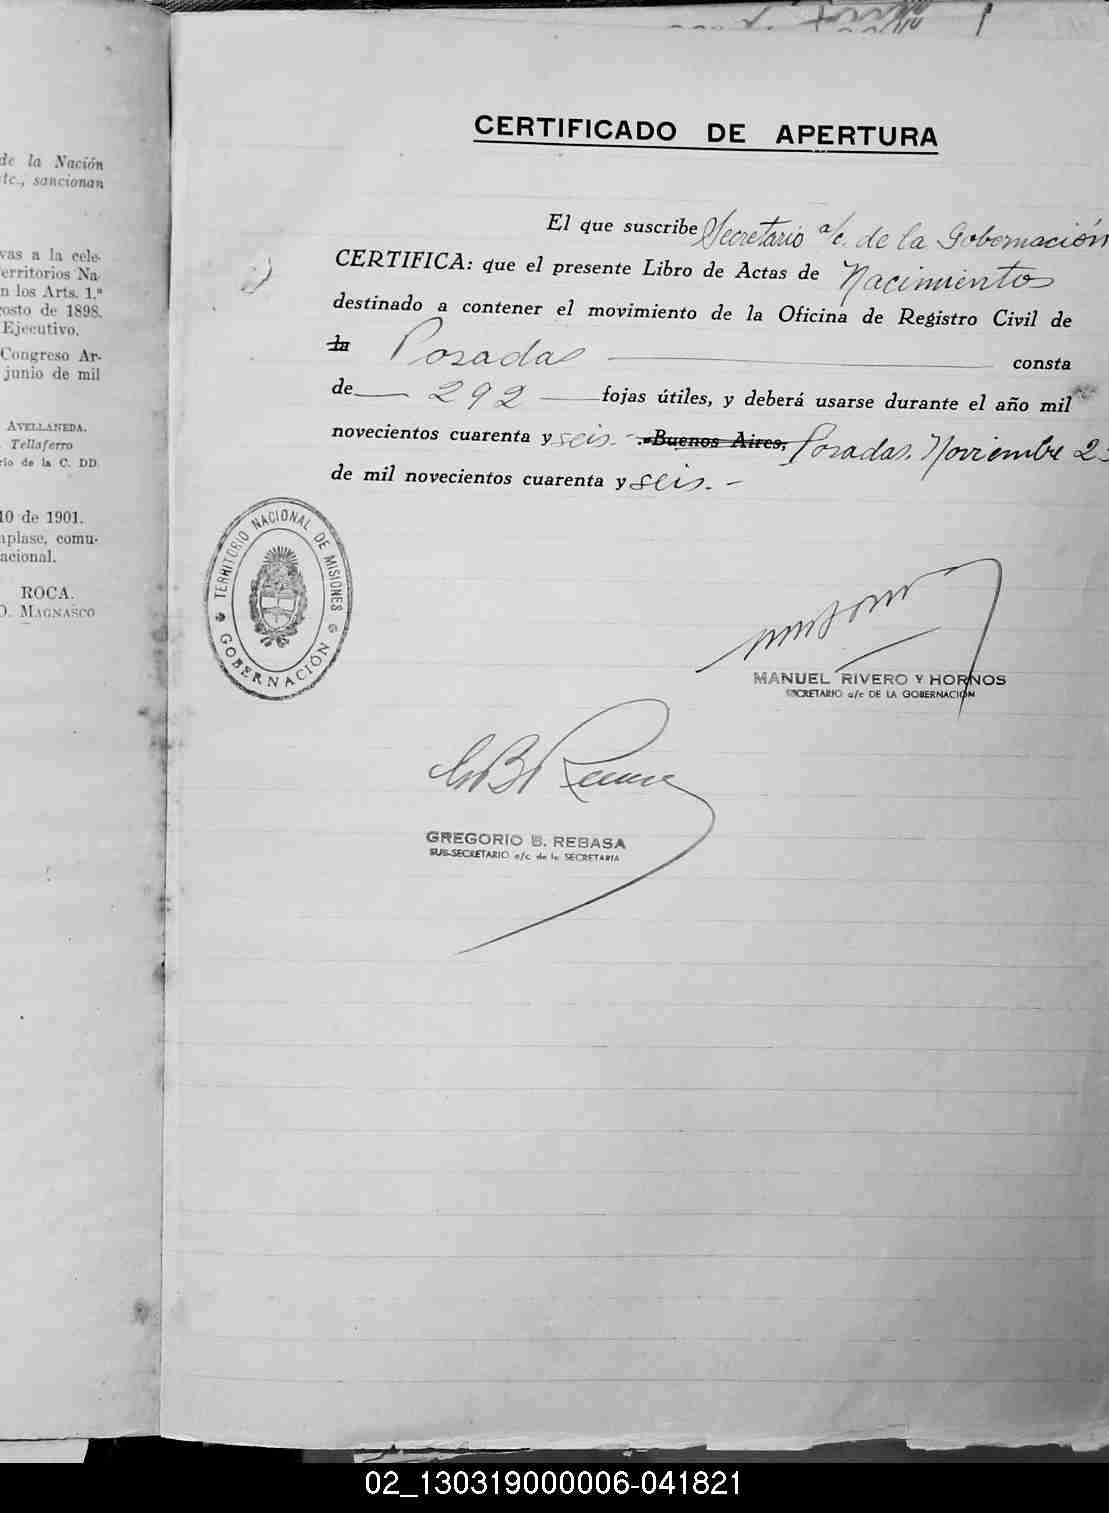 de la Nación
tc., sancionan
vas a la cele-
erritorios Na-
n los Arts. 1.º
osto de 1898.
Ejecutivo.
Congreso Ar-
junio de mil
AVELLANEDA.
Tellaferro
rio de la C. DD.
10 de 1901.
nplase, comu-
acional.
ROCA.
O. MAGNASCO
CERTIFICADO DE APERTURA
El que suscribe Secretario a/c. de la Gobernación
CERTIFICA: que el presente Libro de Actas de Nacimientos
destinado a contener el movimiento de la Oficina de Registro Civil de
la Posadas consta
de 292 fojas útiles, y deberá usarse durante el año mil
novecientos cuarenta y seis. - Buenos Aires, Posadas, Noviembre 2
de mil novecientos cuarenta y seis. -
TERRITORIO NACIONAL DE MISIONES
GOBERNACIÓN
MANUEL RIVERO Y HORNOS
SECRETARIO a/c DE LA GOBERNACIÓN
GREGORIO B. REBASA
SUB-SECRETARIO a/c de la SECRETARIA
02_130319000006-041821